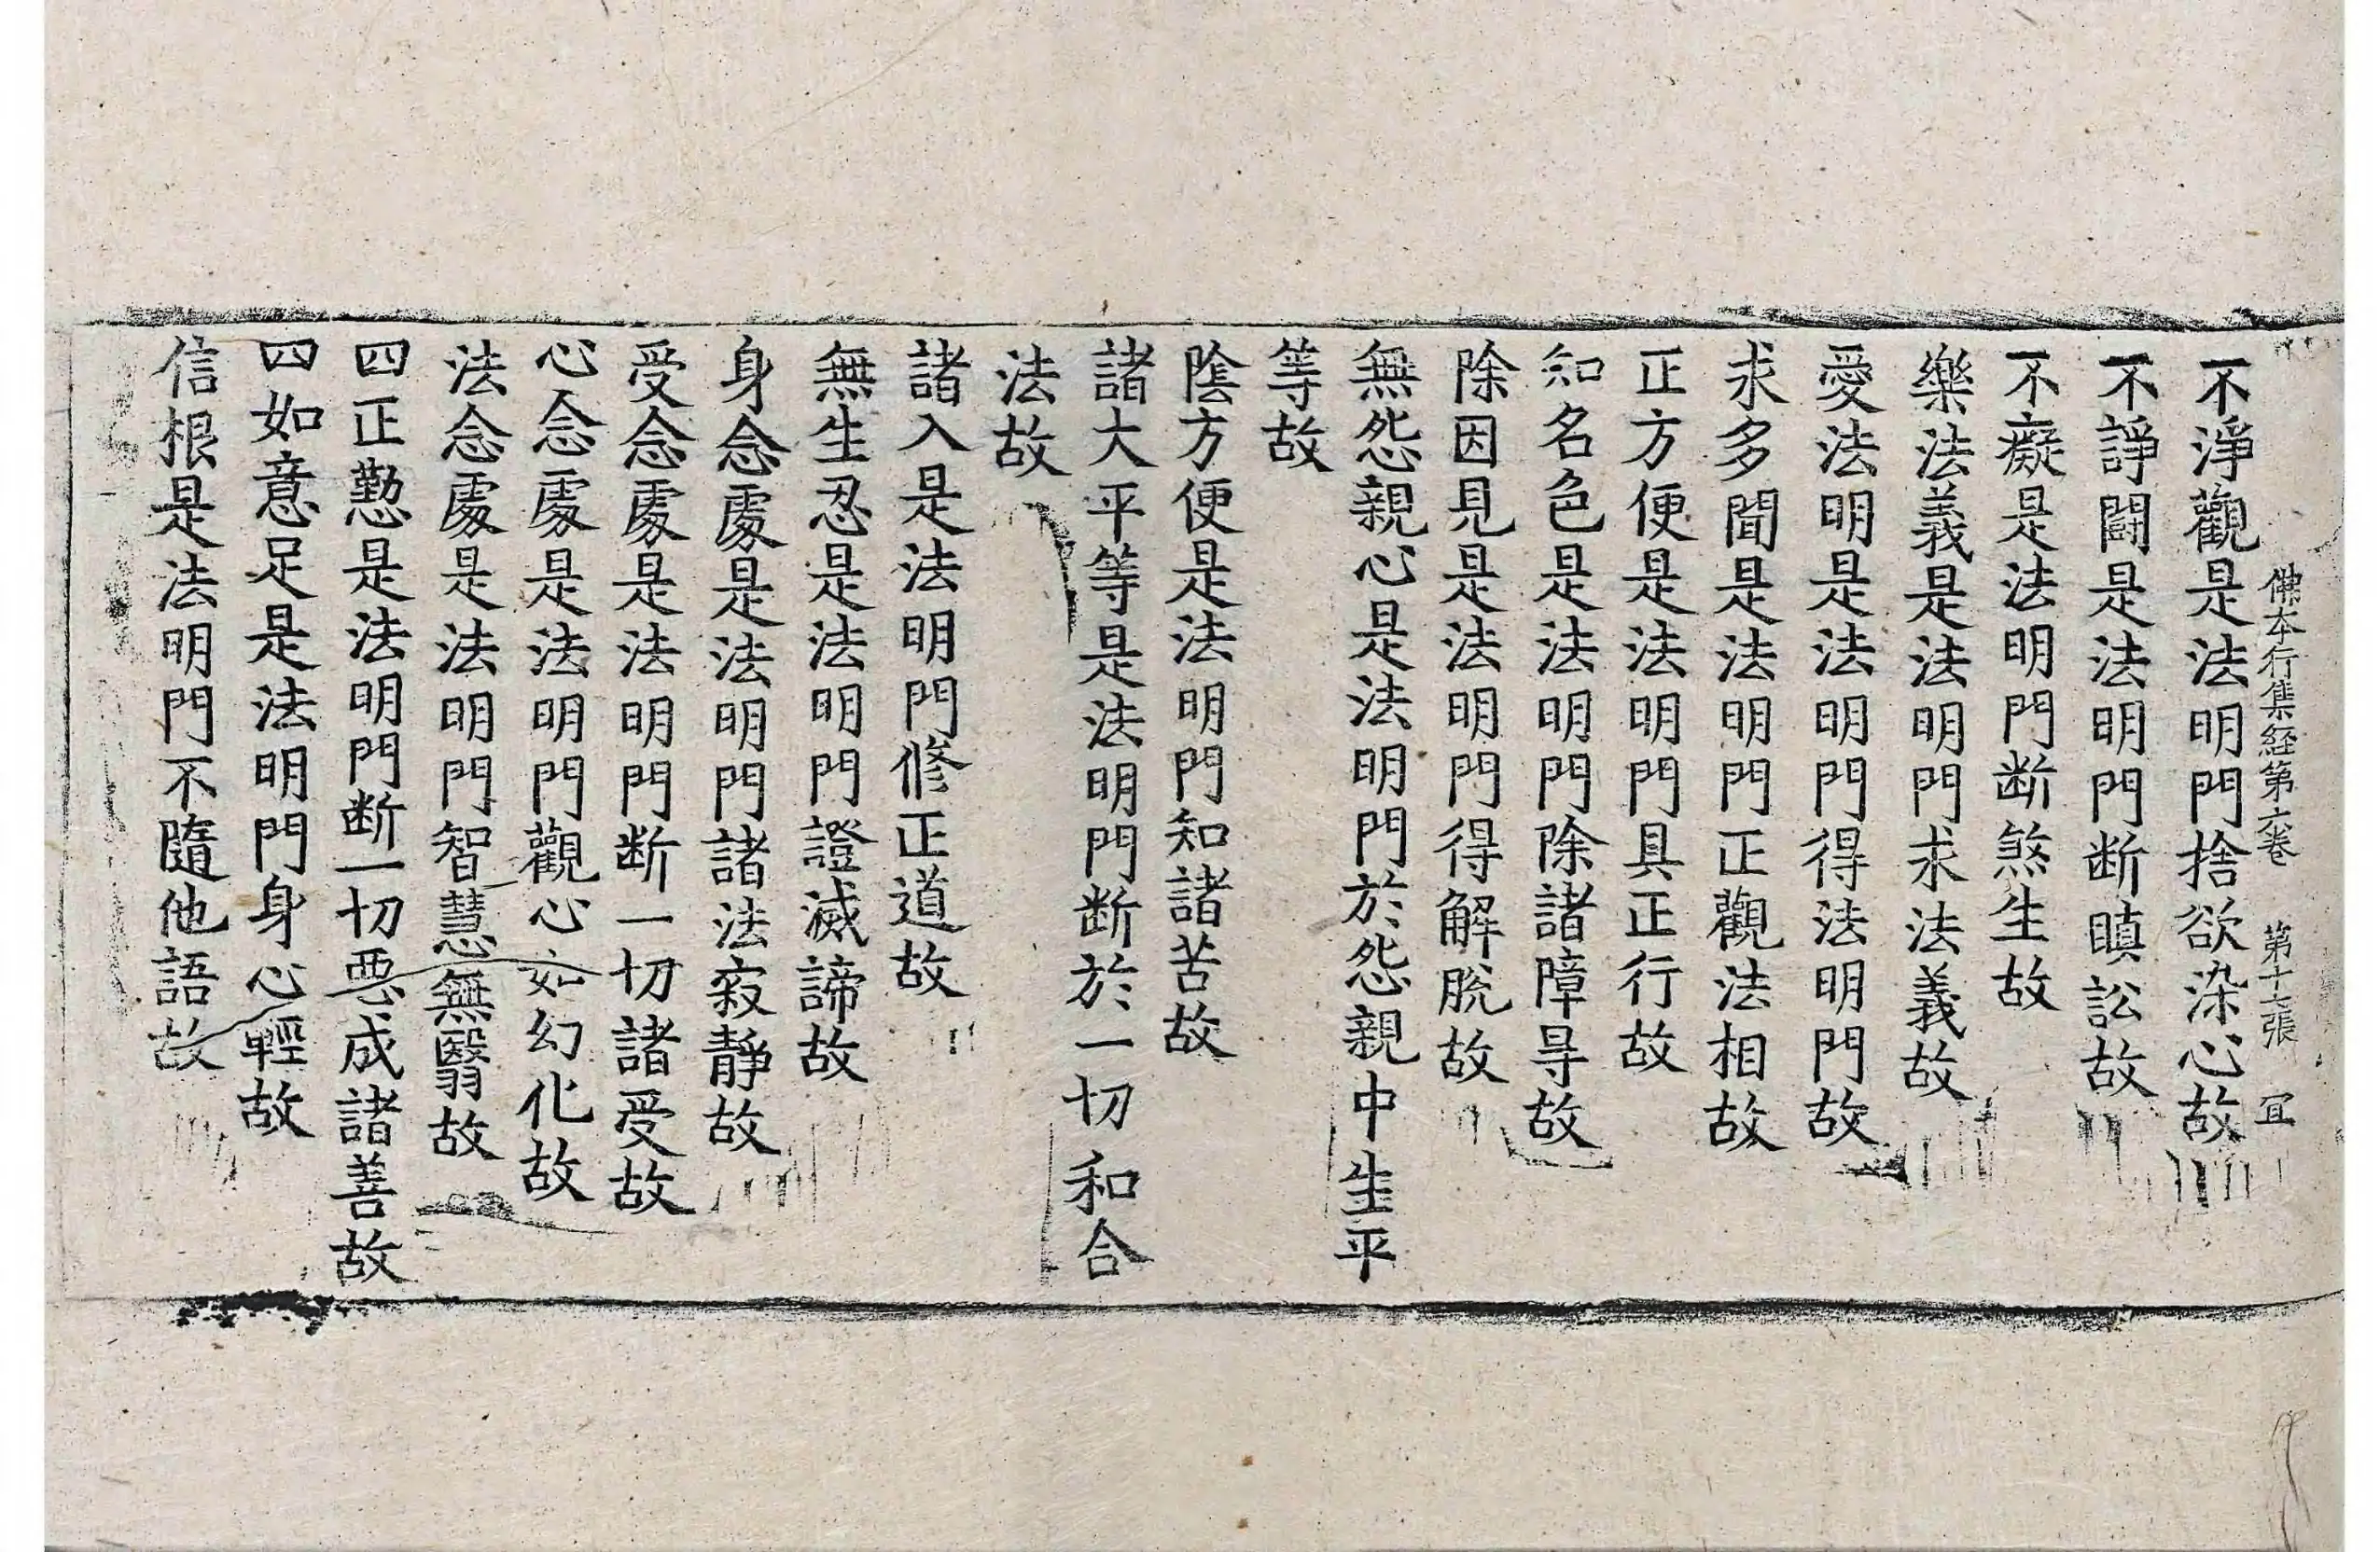 佛本行集経第六卷 第十七張 冝
不淨觀是法明門捨欲染心故
不諍鬪是法明門断瞋訟故
不癡是法明門断煞生故
樂法義是法明門求法義故
愛法明是法明門得法明門故
求多聞是法明門正觀法相故
正方便是法明門具正行故
知名色是法明門除諸障㝵故
除因見是法明門得解脫故
無怨親心是法明門於怨親中生平
等故
陰方便是法明門知諸苦故
諸大平等是法明門断於一切和合
法故
諸入是法明門修正道故
無生忍是法明門證滅諦故
身念處是法明門諸法寂静故
受念處是法明門断一切諸受故
心念處是法明門觀心如幻化故
法念處是法明門智慧無翳故
四正懃是法明門断一切惡成諸善故
四如意足是法明門身心輕故
信根是法明門不隨他語故